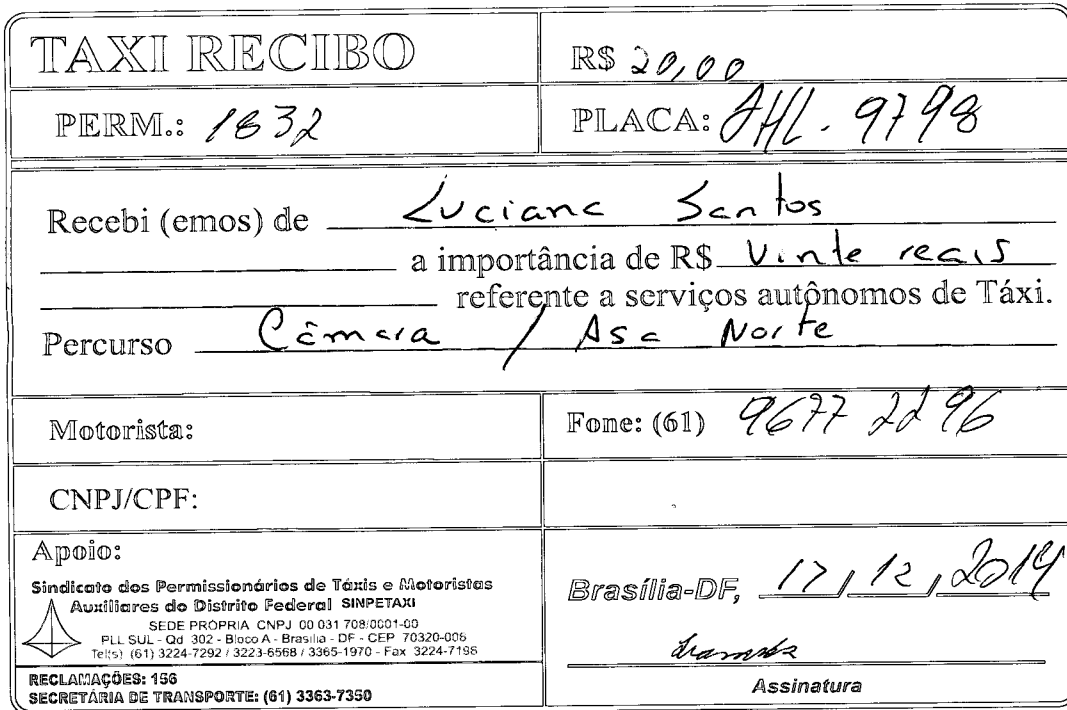 TAXI RECIBO
R$ 20,00
PERM.: 1832
PLACA: JHL. 9798
Recebi (emos) de Luciana Santos
a importância de R$ Vinte reais
referente a serviços autônomos de Táxi.
Percurso Câmara / Asa Norte
Motorista:
Fone: (61) 9677 2296
CNPJ/CPF:
Apoio:
Sindicato dos Permissionários de Táxis e Motoristas
Auxiliares do Distrito Federal SINPETAXI
SEDE PROPRIA CNPJ 00 031 708/0001-00
PLL SUL - Qd 302 - Bloco A - Brasília - DF - CEP 70320-006
Tel(s) (61) 3224-7292 / 3223-6568 / 3365-1970 - Fax 3224-7196
RECLAMAÇÕES: 156
SECRETÁRIA DE TRANSPORTE: (61) 3363-7350
Brasília-DF, 17 / 12 / 2014
Assinatura